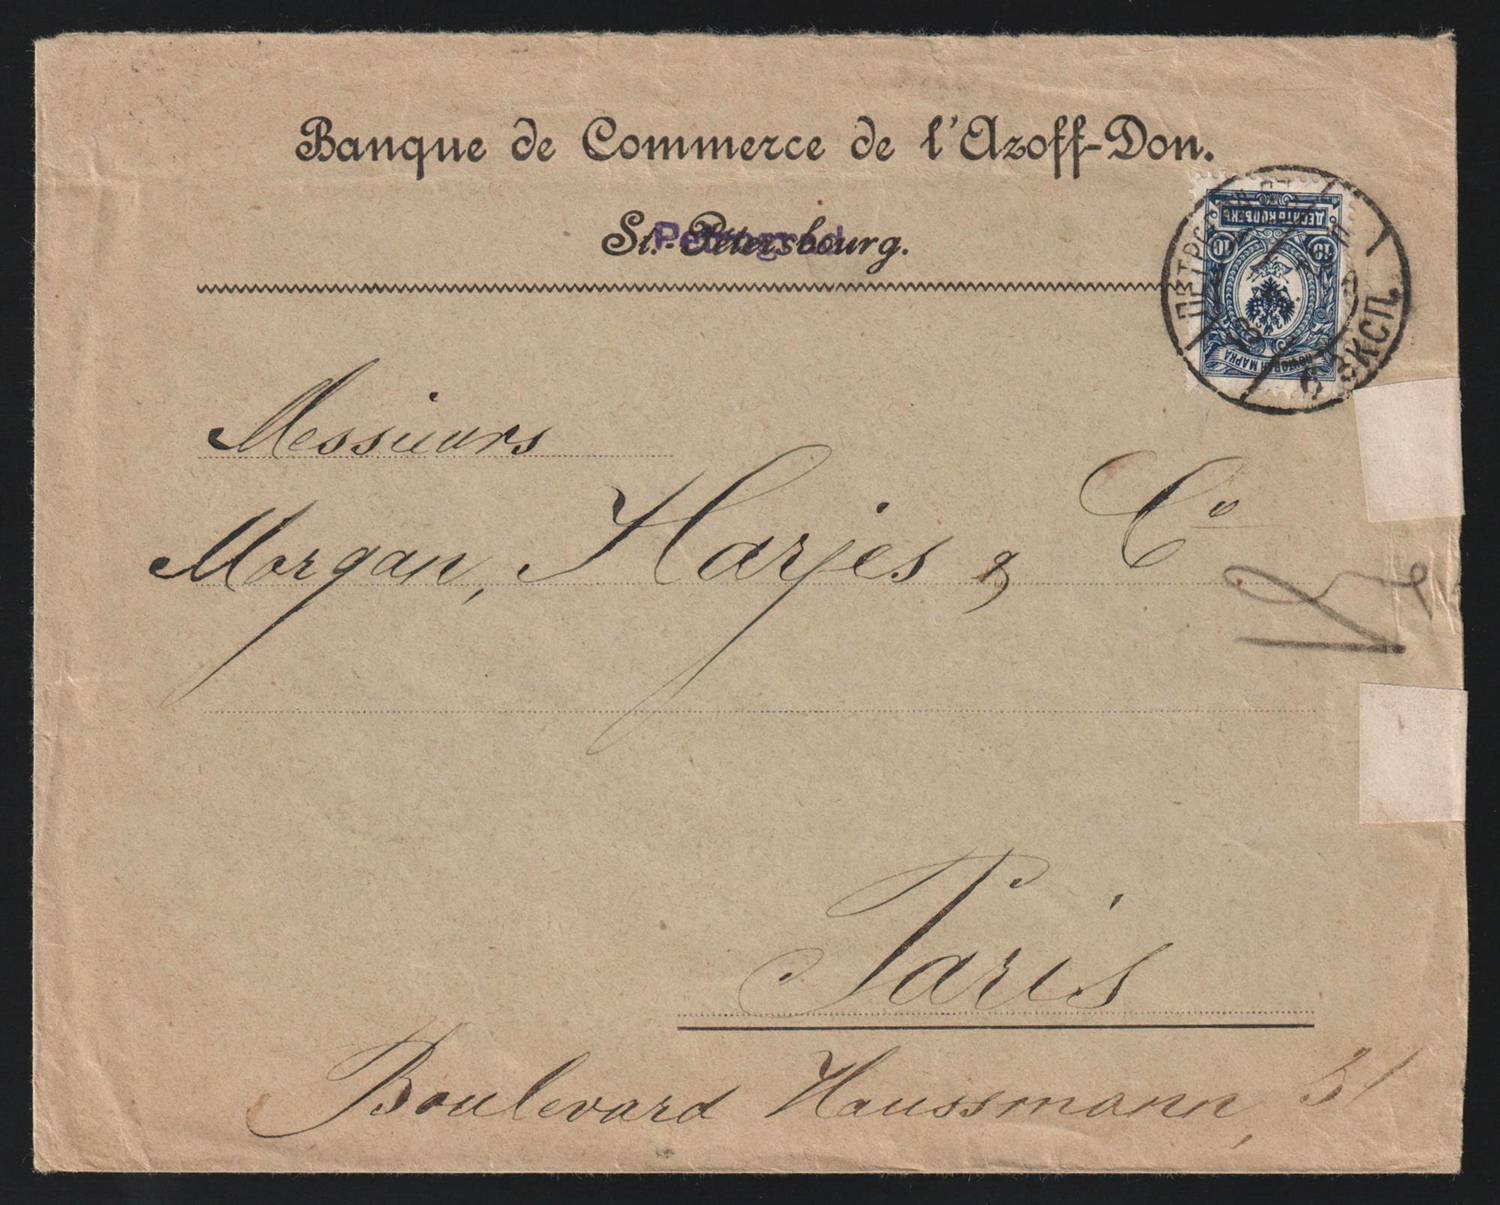 Banque de Commerce de l'Azoff-Don.
St. Pétersbourg.
Petrograd
ДЕСЯТЬ КОПѢЕКЪ
10 10
ПОЧТОВАЯ МАРКА
6 ЭКСП.
Messieurs
Morgan, Harjes & Co
Paris
Boulevard Haussmann, 31